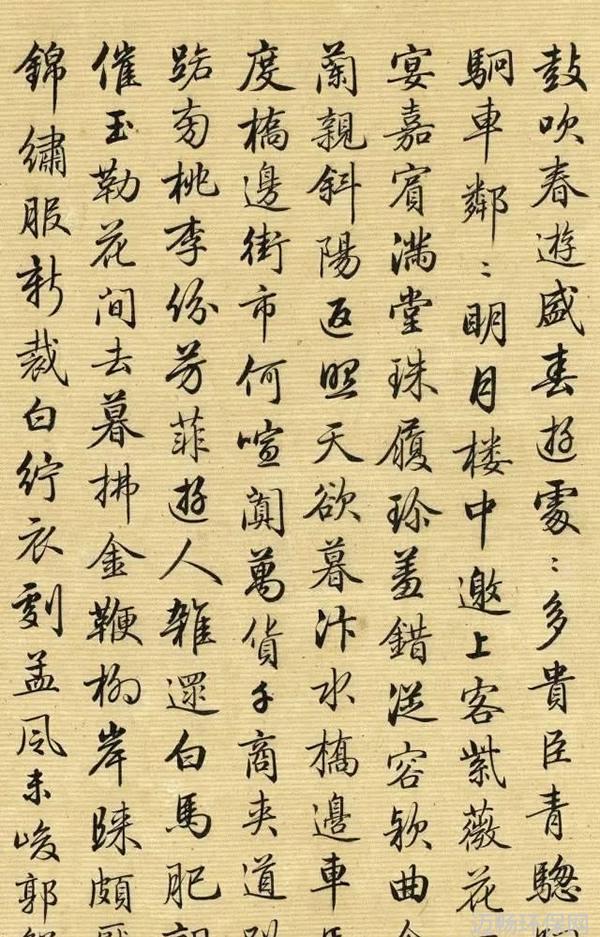 鼓吹春遊盛春遊處:多貴臣青驄
駉車鄰:明月楼中邀上客紫薇花
宴嘉賓滿堂珠履珍羞錯從容欵曲
蘭親斜陽返照天欲暮汴水橋邊車
度橋邊街市何喧闐萬貨千商夾道
桃李份芳菲遊人雜還白馬肥
催玉勒花間去暮拂金鞭柳岸
錦繡服新裁白紵衣劇孟風未峻郭
迈畅环保网